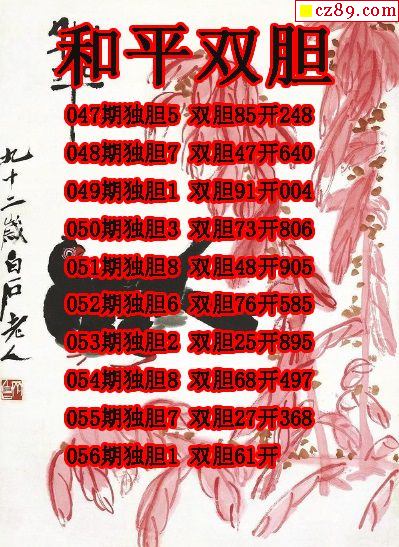 cz89.com
和平双胆
047期独胆5 双胆85开248
048期独胆7 双胆47开640
049期独胆1 双胆91开004
050期独胆3 双胆73开806
051期独胆8 双胆48开905
052期独胆6 双胆76开585
053期独胆2 双胆25开895
054期独胆8 双胆68开497
055期独胆7 双胆27开368
056期独胆1 双胆61开
九十二岁白石老人